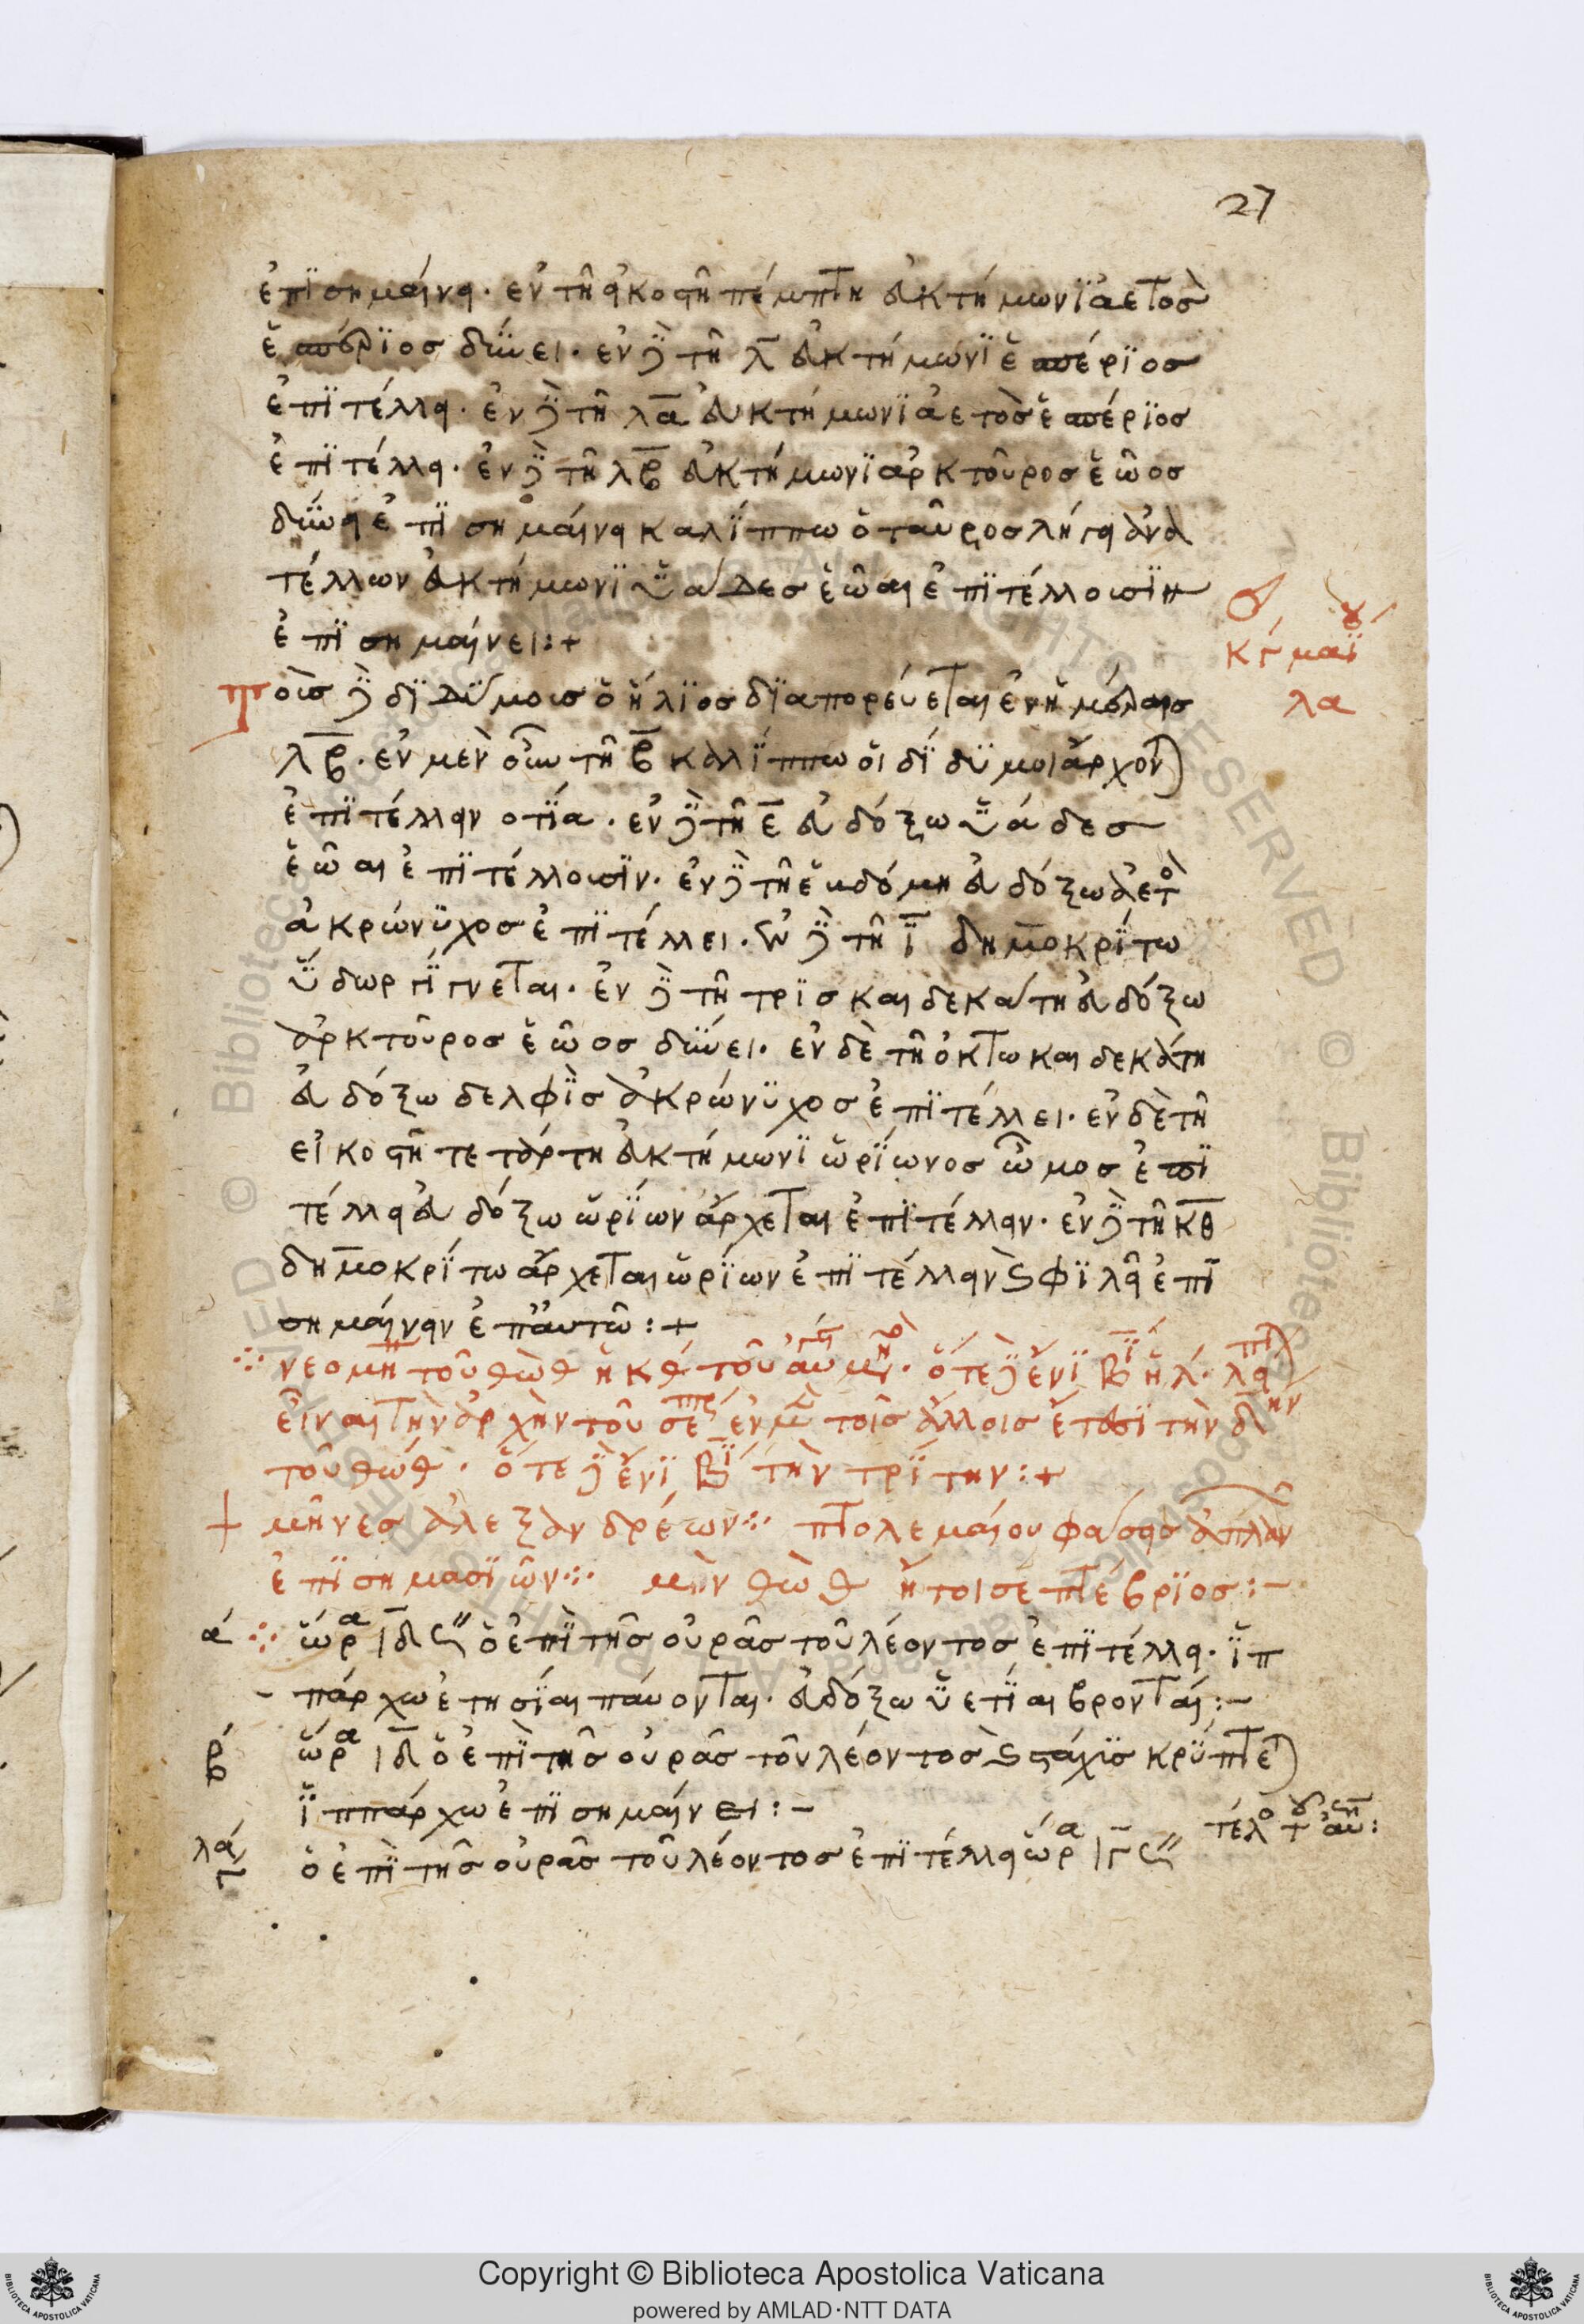 27
ἐπϊσημαίνει· ἐν τῆ εἰκοστῆ πέμπτη εὐκτήμωνϊ ἀετὸσ
ἑσπέρϊος δύνει· ἐν δὲ τῆ λ̅ εὐκτήμωνϊ ἑσπέρϊοσ
ἐπϊτέλλει· ἐν δὲ τῆ λ̅α̅ εὐκτήμωνϊ ἀετὸσ ἑσπέρϊοσ
ἐπϊτέλλει· ἐν δὲ τῆ λ̅β̅ εὐκτήμωνϊ ἀρκτοῦροσ ἑῶοσ
δύνει ἐπϊσημαίνει καλίππω ὁ ταῦροσ λήγει ἀνα
τέλλων εὐκτήμωνϊ ὑάδεσ ἑῶαι ἐπϊτέλλουσϊν
ἐπϊσημαίνει:+
♂ ♉
κγ μαϊ
λα
τοὺσ δὲ δϊδύμουσ ὁ ἥλϊοσ δϊαπορεύεται ἐν ἡμέραισ
λ̅β̅· ἐν μὲν οὖν τῆ β̅ καλίππω οἱ δίδϋμοι ἄρχονται
ἐπϊτέλλειν νοτία· ἐν δὲ τῆ ε̅ εὐδόξω ὑάδεσ
ἑῶαι ἐπϊτέλλουσϊν· ἐν δὲ τῆ ἑβδόμη εὐδόξω ἀετὸ
ἀκρώνϋχοσ ἐπϊτέλλει· ἐν δὲ τῆ ϊ̅ δημοκρίτω
ὕδωρ γίγνεται· ἐν δὲ τῆ τρϊσκαιδεκάτη εὐδόξω
ἀρκτοῦροσ ἑῶοσ δύνει· ἐν δὲ τῆ ὀκτωκαιδεκάτη
εὐδόξω δελφὶσ ἀκρώνϋχοσ ἐπϊτέλλει· ἐν δὲ τῆ
εἰκοστῆ τετάρτη εὐκτήμωνϊ ὠρίωνοσ ὦμοσ ἐπϊ
τέλλει εὐδόξω ὠρίων ἄρχεται ἐπϊτέλλειν· ἐν δὲ τῆ κ̅θ̅
δημοκρίτω ἄρχεται ὠρίων ἐπϊτέλλειν ϗ φϊλεῖ ἐπϊ
σημαίνειν ἐπ' αὐτῶ:+
τοῦ θὼθ ἡ κθ τοῦ
εἶναι τὴν ἀρχὴν τοῦ σεπ ἐν τοῖσ ἄλλοισ ἔτεσϊ τὴν
τοῦ θώθ· ὅτε δὲ ἔνϊ β τὴν τρίτην:+
+ μῆνεσ ἀλεξανδρέων∴ πτολεμαίου φάσεισ ἀπλαν
ἐπϊσημασϊῶν∴ μὴν θὼθ ἤτοι σεπτέβρϊοσ:-
α ∴ ὥρα ιδ ϛ" ὁ ἐπὶ τῆσ οὐρᾶσ τοῦ λέοντοσ ἐπϊτέλλει· ἱπ
πάρχω ἐτησίαι παύονται· εὐδόξω ὑετίαι βρονταί:-
β ὥρα ιδ ὁ ἐπὶ τῆσ οὐρᾶσ τοῦ λέοντοσ ϗ στάχϊσ κρύπτεται
ἱππάρχω ἐπϊσημαίνει:-
λα γ ὁ ἐπὶ τῆσ οὐρᾶσ τοῦ λέοντοσ ἐπϊτέλλει ὥρα ιγ ϛ"
Copyright © Biblioteca Apostolica Vaticana
powered by AMLAD·NTT DATA